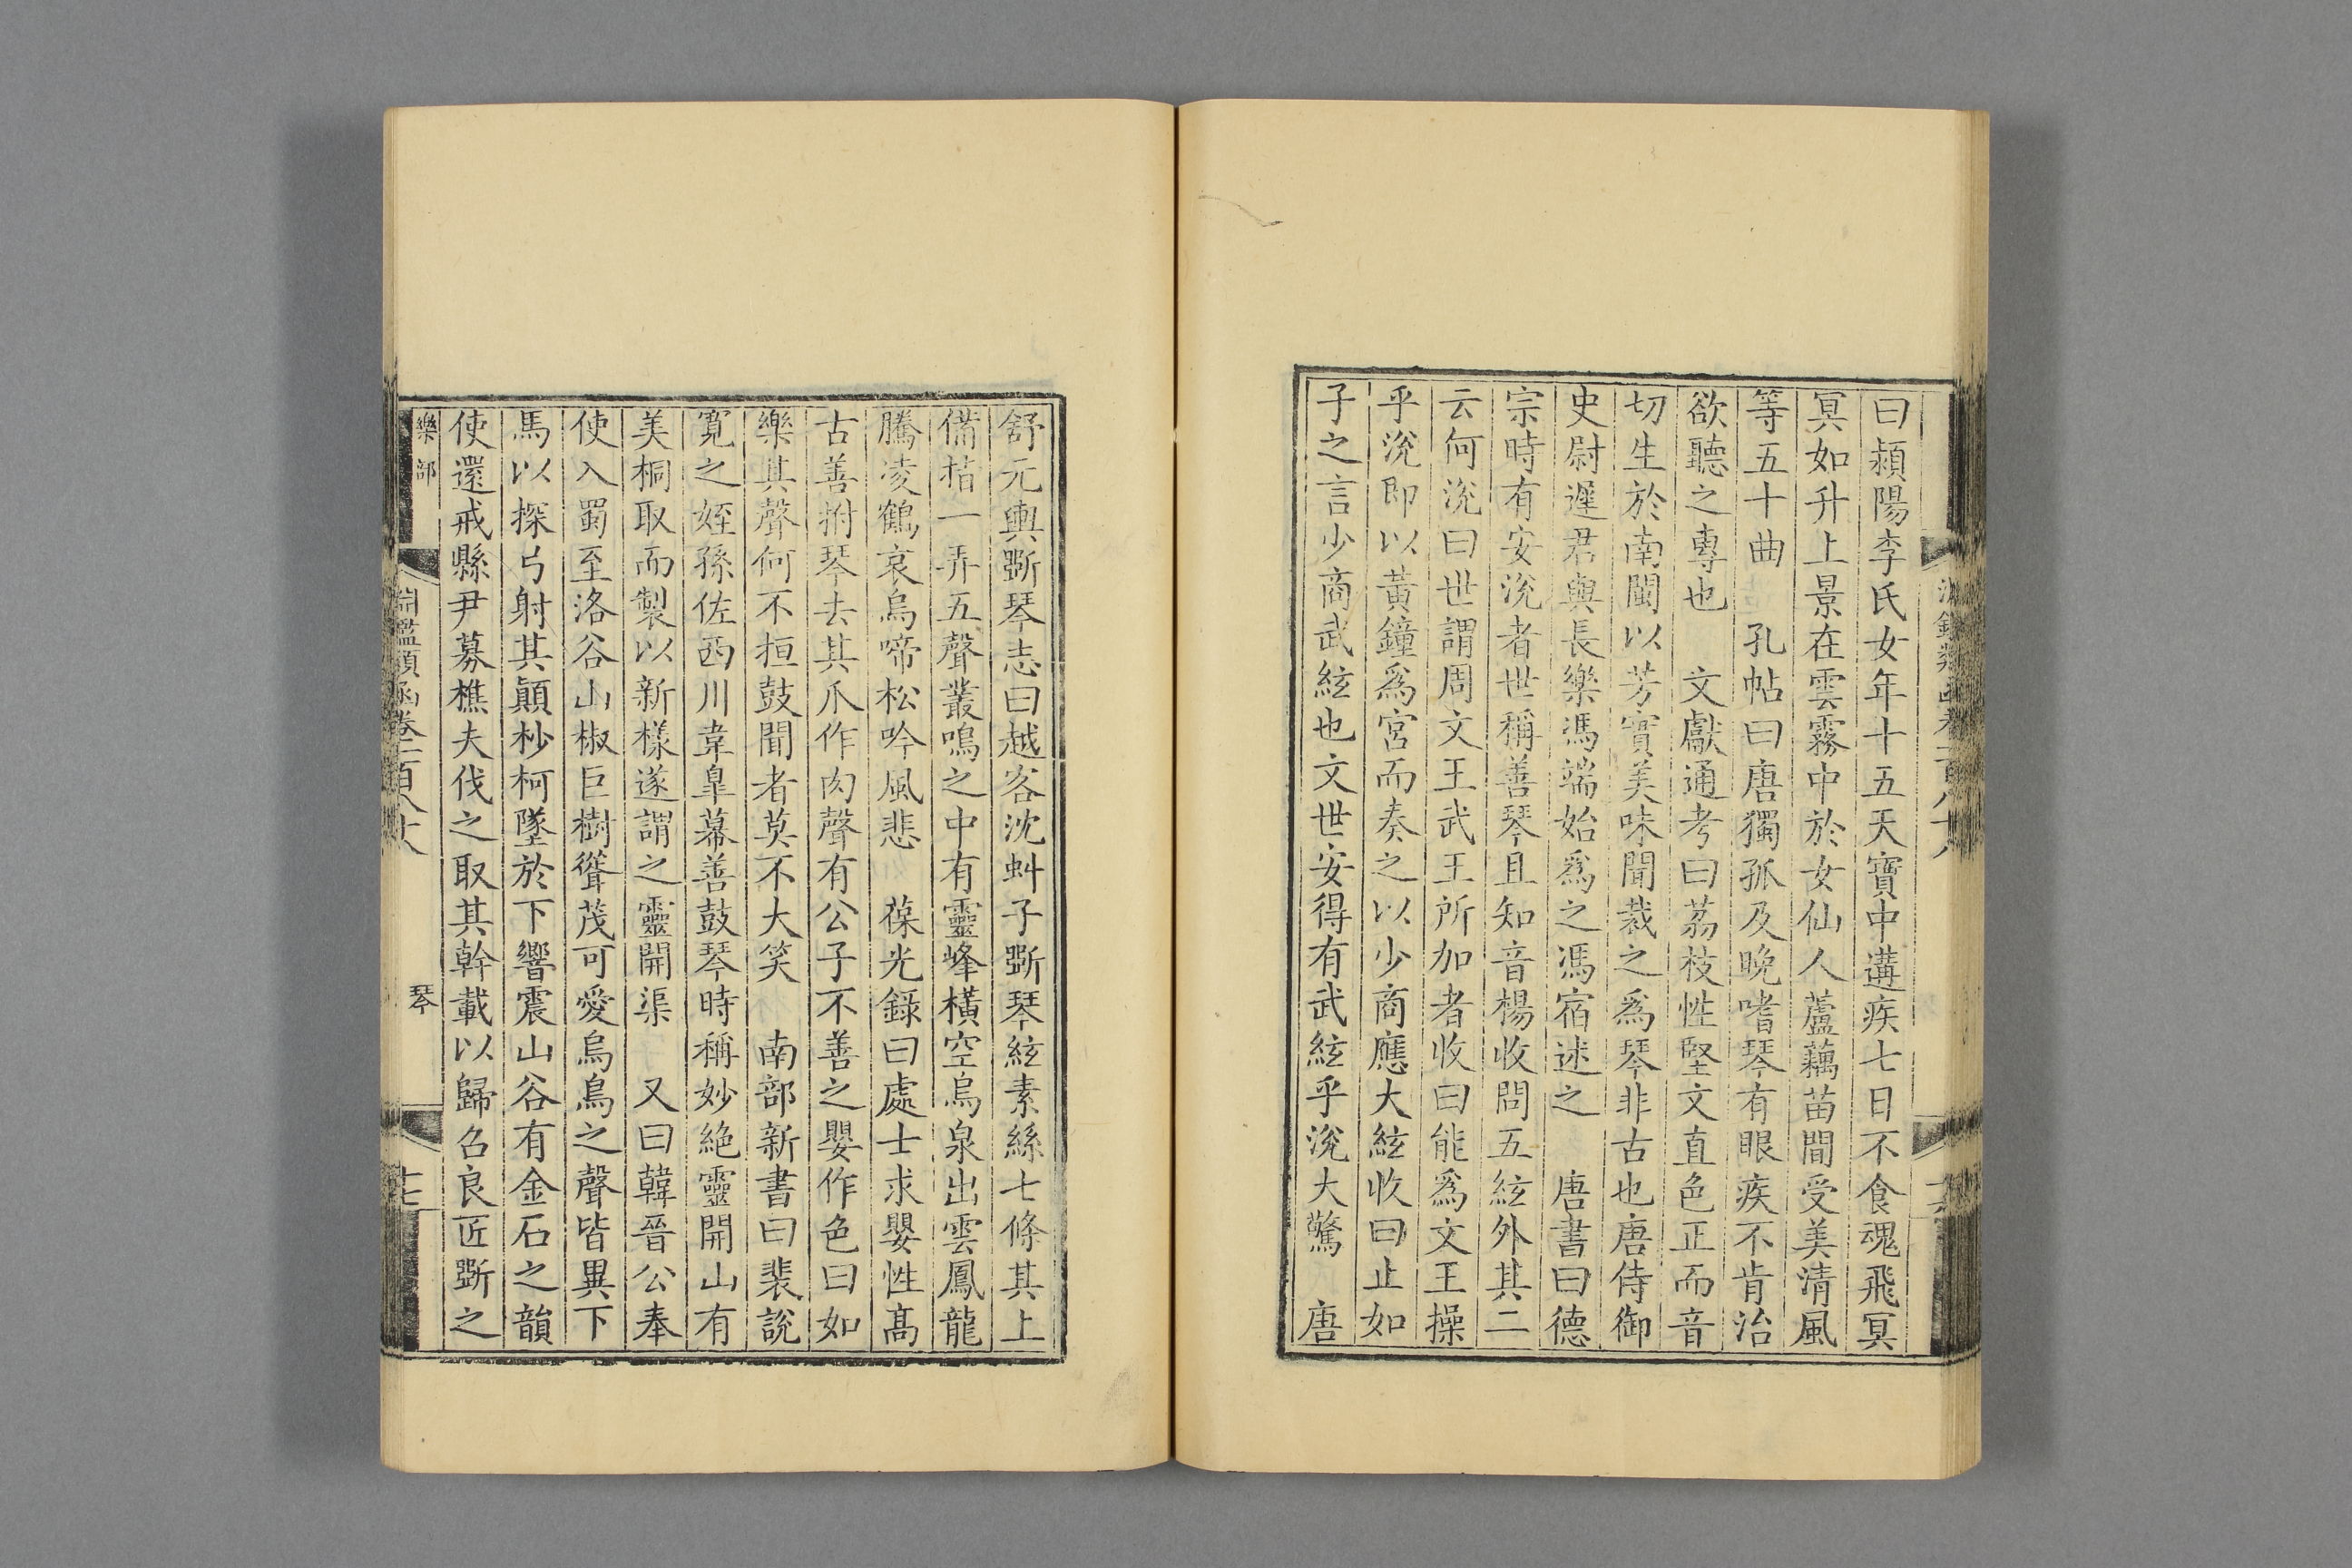 曰潁陽李氏女年十五天寶中遘疾七日不食魂飛冥
冥如升上景在雲霧中於女仙人蘆藕苗間受美清風
等五十曲　孔帖曰唐獨孤及晚嗜琴有眼疾不肯治
欲聽之專也　文獻通考曰荔枝性堅文直色正而音
切生於南閩以芳實美味聞裁之爲琴非古也唐侍御
史尉遲君與長樂馮端始爲之馮宿述之　唐書曰德
宗時有安涗者世稱善琴且知音楊收問五絃外其二
云何涗曰世謂周文王武王所加者收曰能爲文王操
乎涗即以黃鐘爲宮而奏之以少商應大絃收曰止如
子之言少商武絃也文世安得有武絃乎涗大驚　唐
舒元輿斲琴志曰越客沈虯子斲琴絃素絲七條其上
備指一弄五聲叢鳴之中有靈峰橫空烏泉出雲鳳龍
騰凌鶴哀烏啼松吟風悲　葆光錄曰處士求嬰性高
古善拊琴去其爪作肉聲有公子不善之嬰作色曰如
樂其聲何不搄鼓聞者莫不大笑　南部新書曰裴說
寬之姪孫佐西川韋皐幕善鼓琴時稱妙絕靈開山有
美桐取而製以新樣遂謂之靈開渠　又曰韓晉公奉
使入蜀至洛谷山椒巨樹聳茂可愛烏鳥之聲皆異下
馬以探弓射其顚杪柯墜於下響震山谷有金石之韻
使還戒縣尹募樵夫伐之取其幹載以歸召良匠斲之
樂部　淵鑑類函卷一百八十八　琴　十七